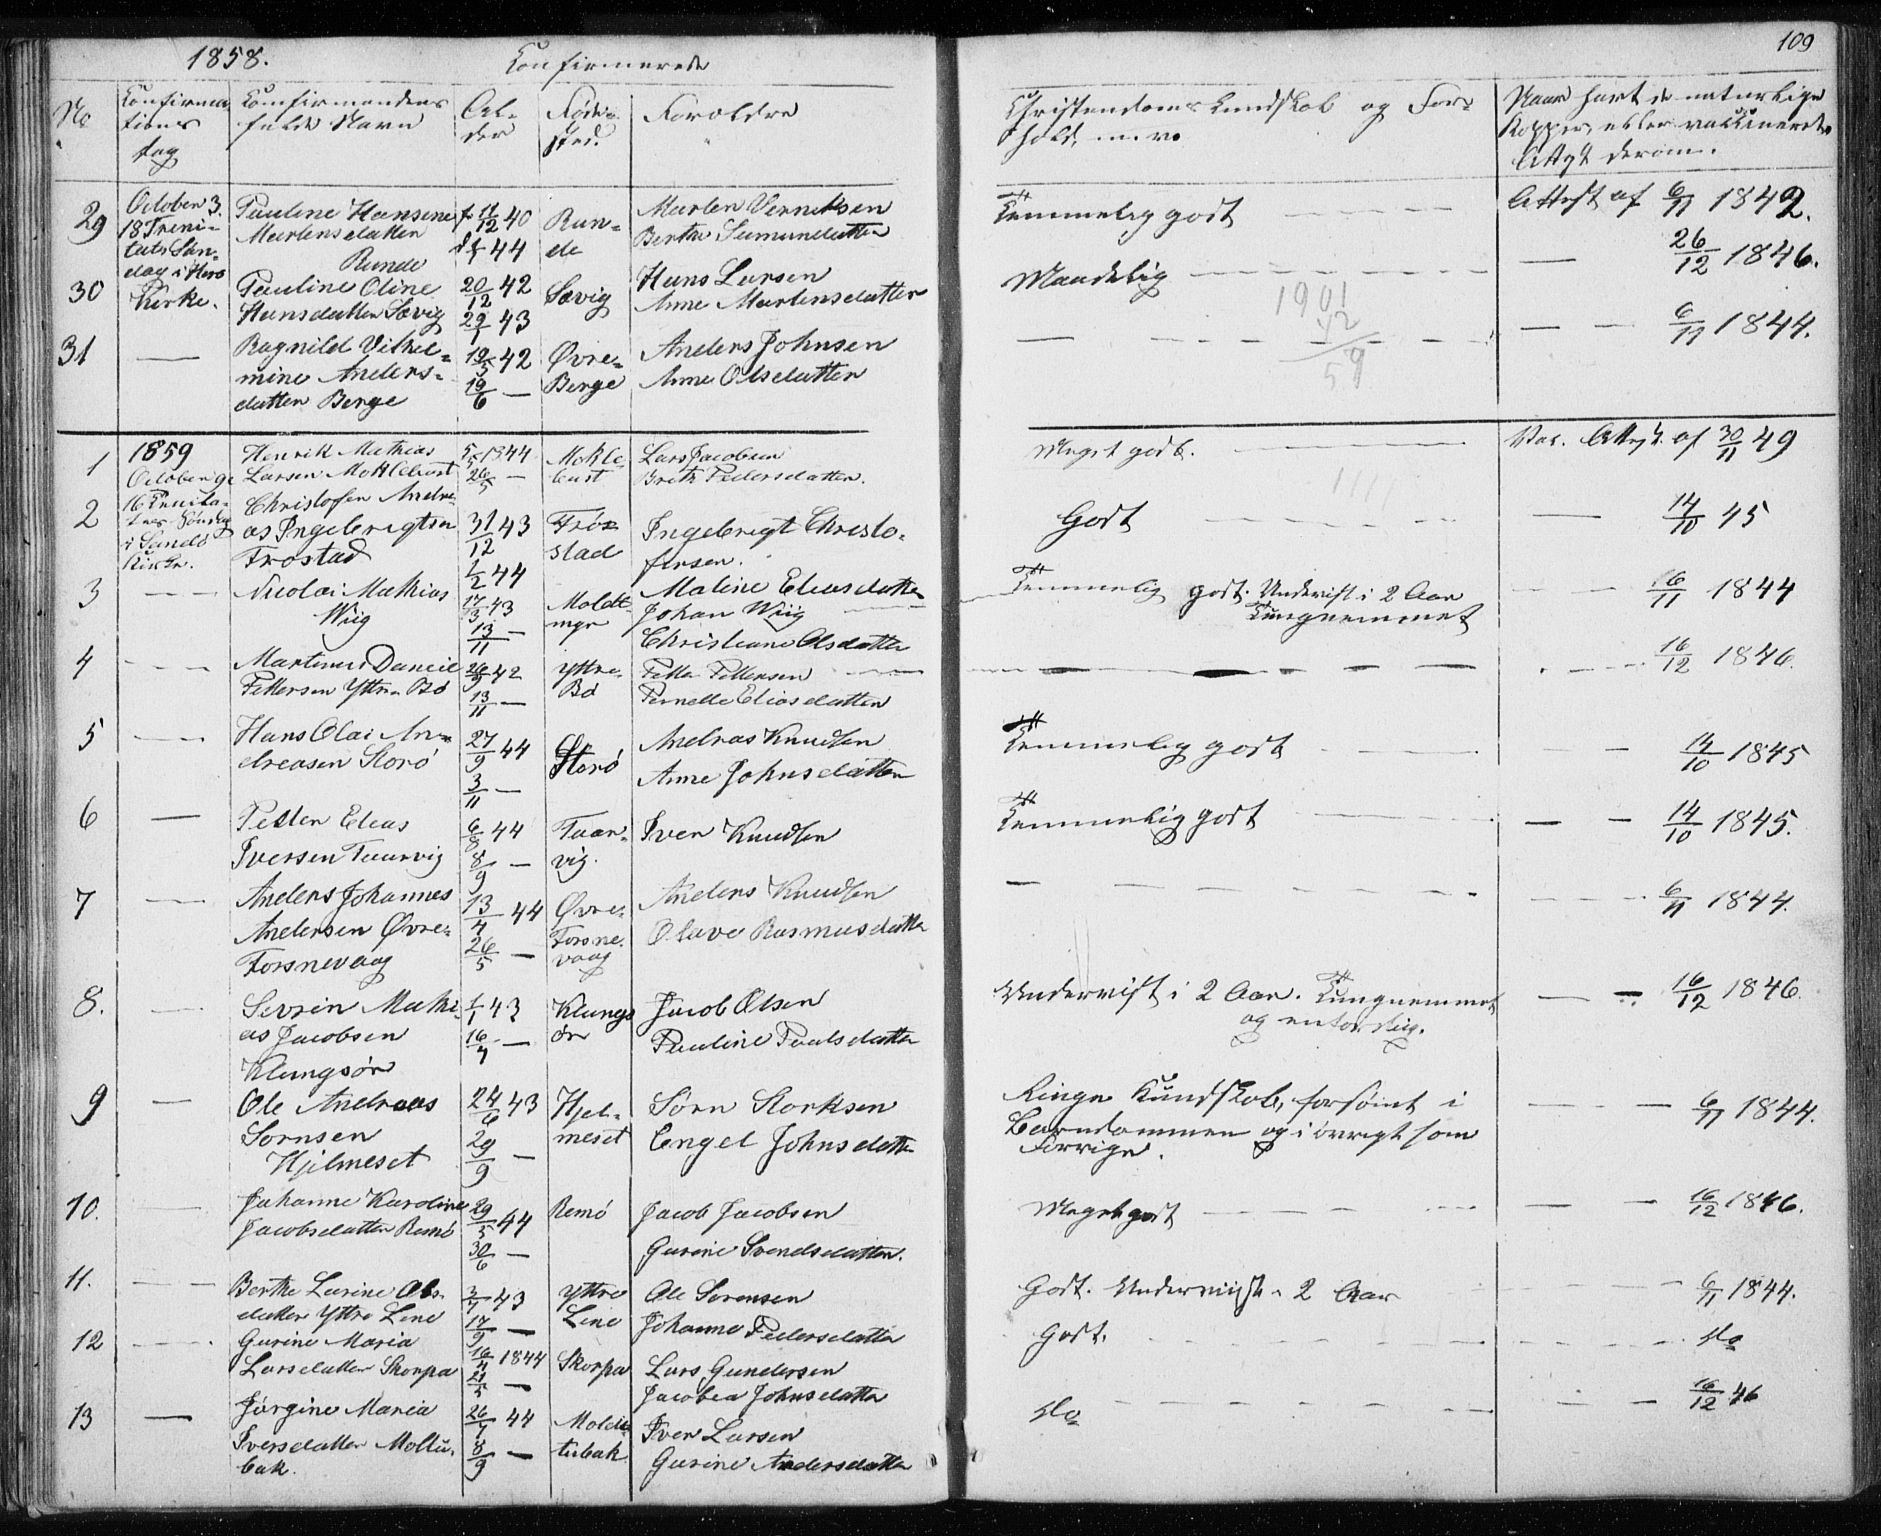 109
1858.
Konfirmerede
No
Konfirma
tions
dag
Konfirmandens
fulde Navn
Al-
der
Føde-
sted.
Forældre
Christendoms Kundskab og For-
hold, m. v.
Naar havt de naturlige
Kopper, eller vaccinerede
Attest derom.
29
October 3.
18 Trini-
tatis Søn-
dag i Herø
Kirke.
Pauline Hansine
Martensdatter
Runde
f 11/12 40
44
Run-
de
Marten Verniksen
Berthe Samundatter
Temmelig godt
Attest af 6/11 1842.
30
Pauline Oline
Hansdatter Sævig
20/12 42
29/1 43
Sævig
Hans Larsen
Anne Martensdatter
Maadelig
26/12 1846.
1901
42
59
31
—
Ragnild Vilhel-
mine Anders-
datter Berge
12/5 42
19/6 —
Øvre-
Berge
Anders Johnsen
Anne Olsdatter
— — —
— — 6/11 1844.
1
1859
October 9de
16 Trinita-
tes Søndag
i Sandø
Kirke.
Henrik Mathias
Larsen Moklebust
5/5 1844
26/5 —
Mokle-
bust
Lars Jacobsen
Brith Pedersdatter.
Meget godt.
Vac. Attest af 30/11 49
2
Christofer Andre-
as Ingebrigtsen
Frostad
31/12 43
1/2 44
Frø-
stad
Ingebrigt Christo-
fersen.
Maline Eliasdatter
Godt
— 14/10 45
3
— —
Nicolai Mathias
Wiig
17/3 43
13/11 —
Moldt-
myr
Johan Wiig
Christiane Olsdatter
Temmelig godt. Undervist i 2 Aar
Tungnemmet
— — 16/11 1844
4
— — —
Martinus Daniel
Pettersen Yttre Bø
26/9 42
13/11 —
Yttre-
Bø
Petter Pettersen
Pernelle Eliasdatter
— — —
16/12 1846.
5
— —
Hans Olai An-
dreasen Storø
27/9 44
3/11 —
Storø
Andreas Knudsen
Anne Johnsdatter
Temmelig godt
— 14/10 1845
6
—
Petter Elias
Iversen Taarvig
6/8 44
8/9 —
Taar-
vig.
Iver Knudsen
Temmelig godt
— — 14/10 1845.
7
— —
Anders Johannes
Andersen Øvre-
Forsnevaag
13/4 44
26/5 —
Øvre-
Forsne-
vaag
Anders Knudsen
Olave Rasmusdatter
— — —
— — 6/11 1844.
8.
— —
Sevrin Mathi-
as Jacobsen
Klungsør
1/1 43
16/4 —
Klungs
ør
Jacob Olsen
Pauline Paulsdatter
Undervist i 2 Aar. Tungnemmet
og
— — 16/12 1846.
9
—
Ole Andreas
Sørnsen
Hjelmeset
24/6 43
29/9 —
Hjel-
meset
Sørn Storksen
Engel Johnsdatter
Ringe Kundskab, forsømt i
Barndommen og i øvrigt som
Forrige.
— — 6/11 1844.
10.
—
Johanne Karoline
Jacobsdatter Remø
29/5 44
30/6 —
Remø
Jacob Jacobsen
Gurine Svendsdatter.
Meget godt
— — 16/12 1846.
11.
— —
Berthe Larine Ols-
datter Yttre Line
3/7 43
17/9 —
Yttre
Line
Ole Sørensen
Johanne Pedersdatter
Godt. Undervist i 2 Aar
— — 6/11 1844.
12
— —
Gurine Maria
Larsdatter Skorpa
16/4 1844
21/5 —
Skorpa
Lars Gundersen
Jacobea Johnsdatter
Godt.
— — do
13
—
Jørgine Maria
Iversdatter Moltu-
bak.
26/7 44
8/9 —
Moldt
tubak
Iver Larsen
Gurine Andersdatter
do
— — 16/12 46